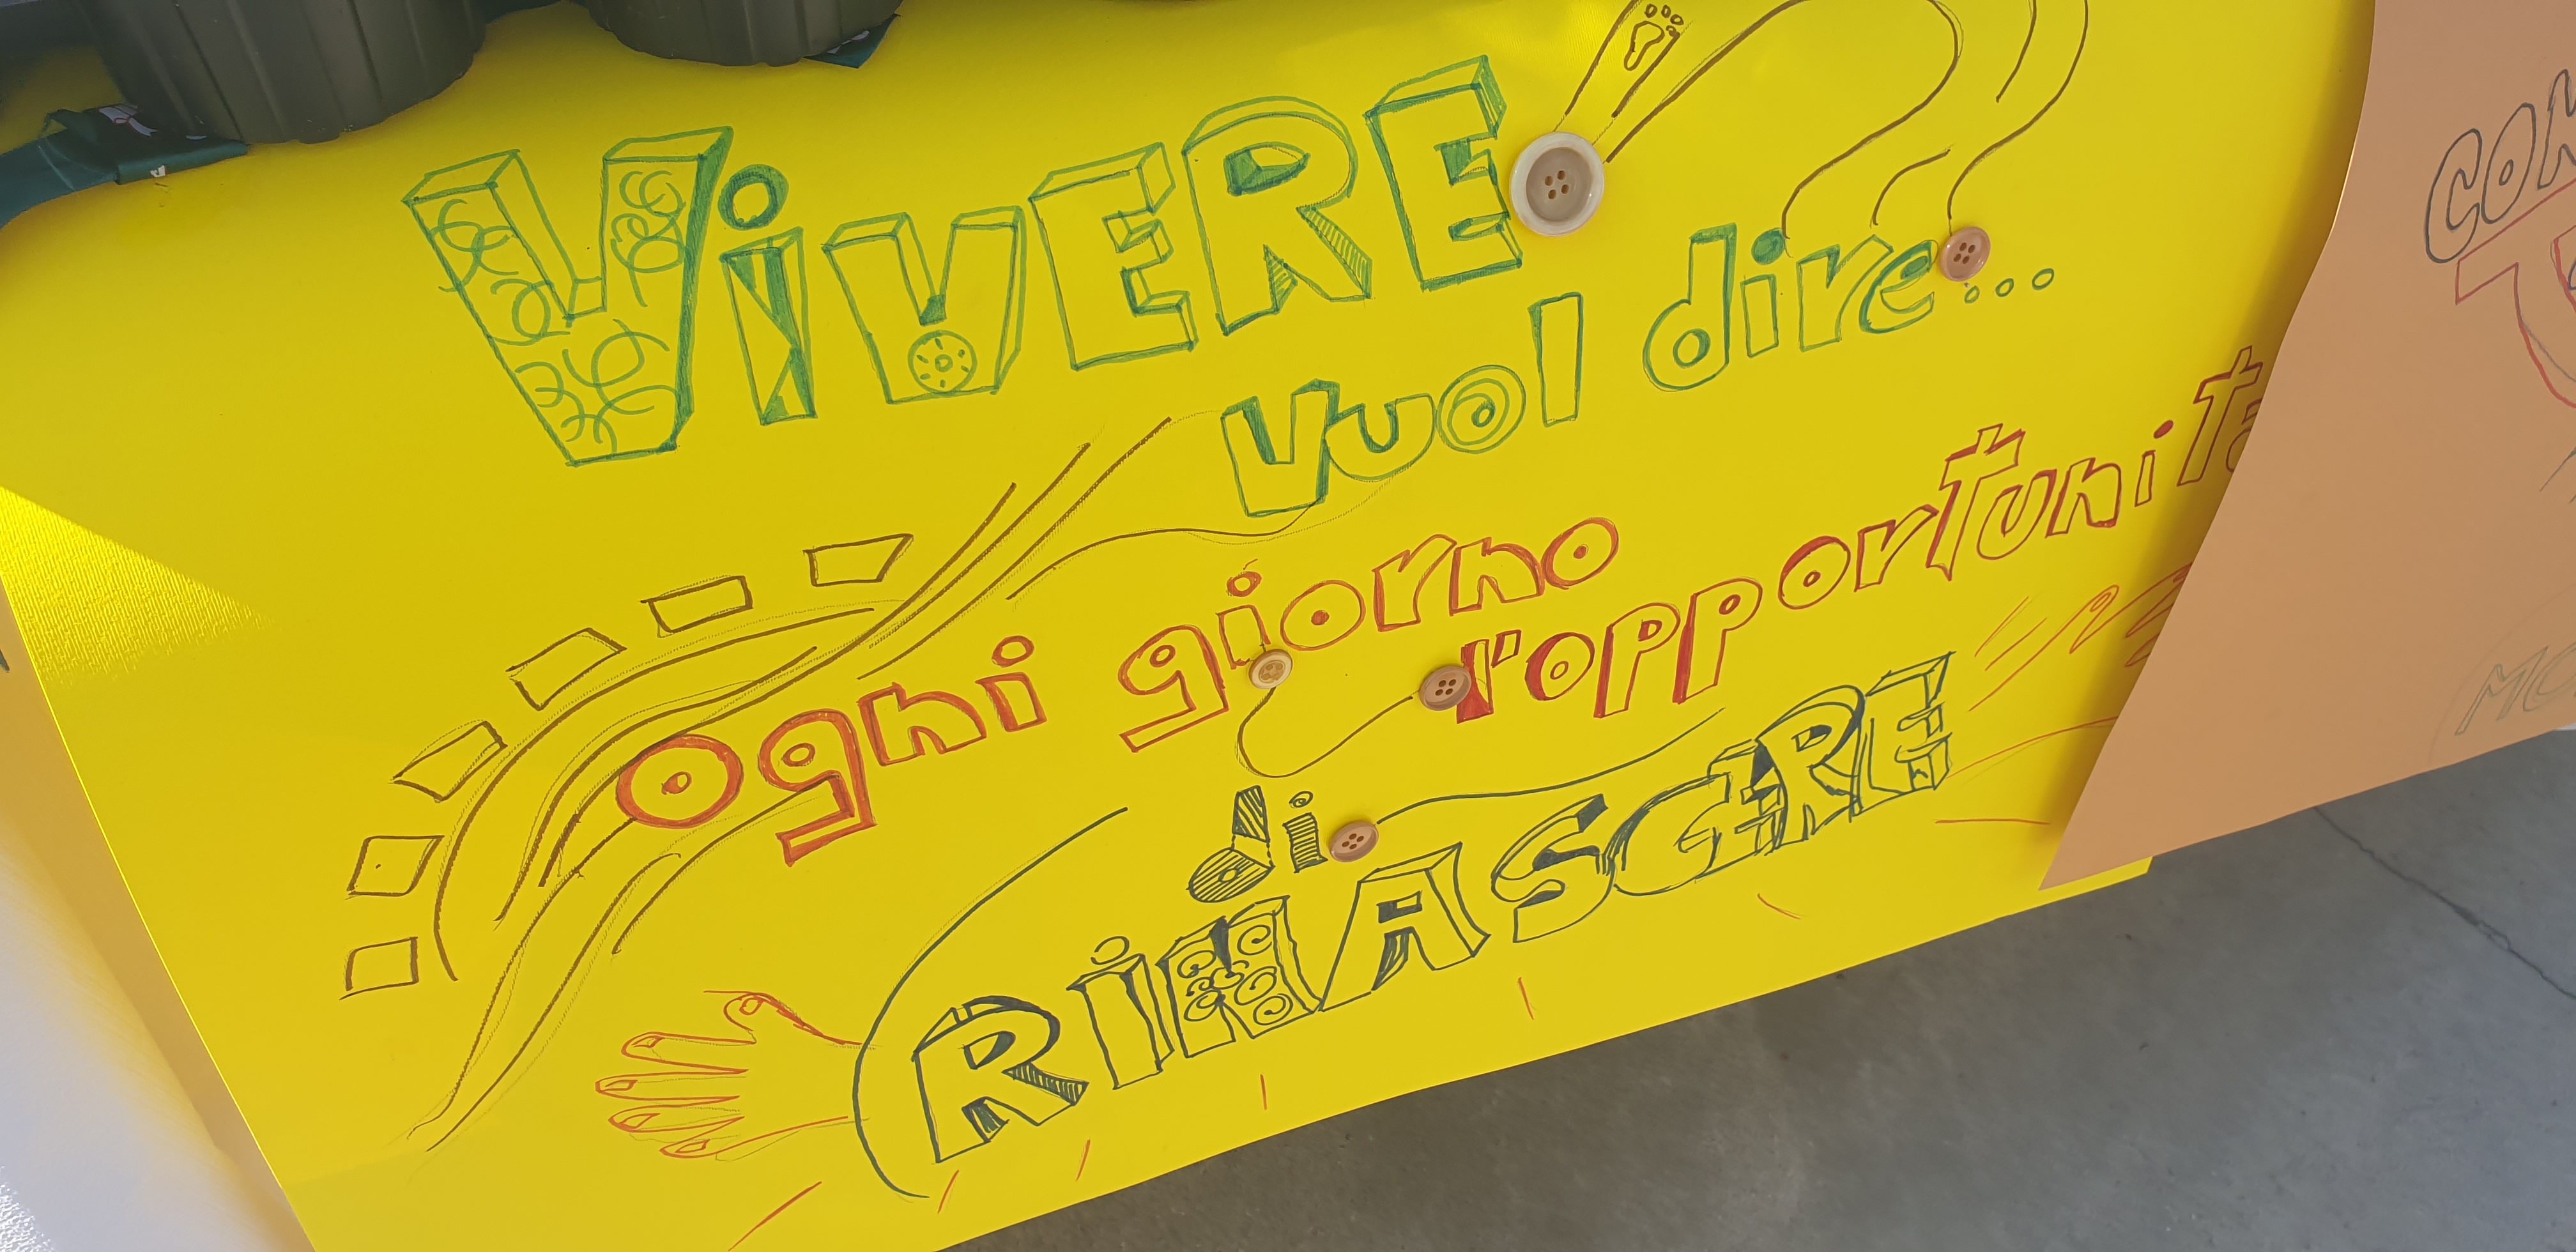 VivERE
vuol dire...
ogni giorno
l'opportunità
di
RiNASCERE
CON
MO